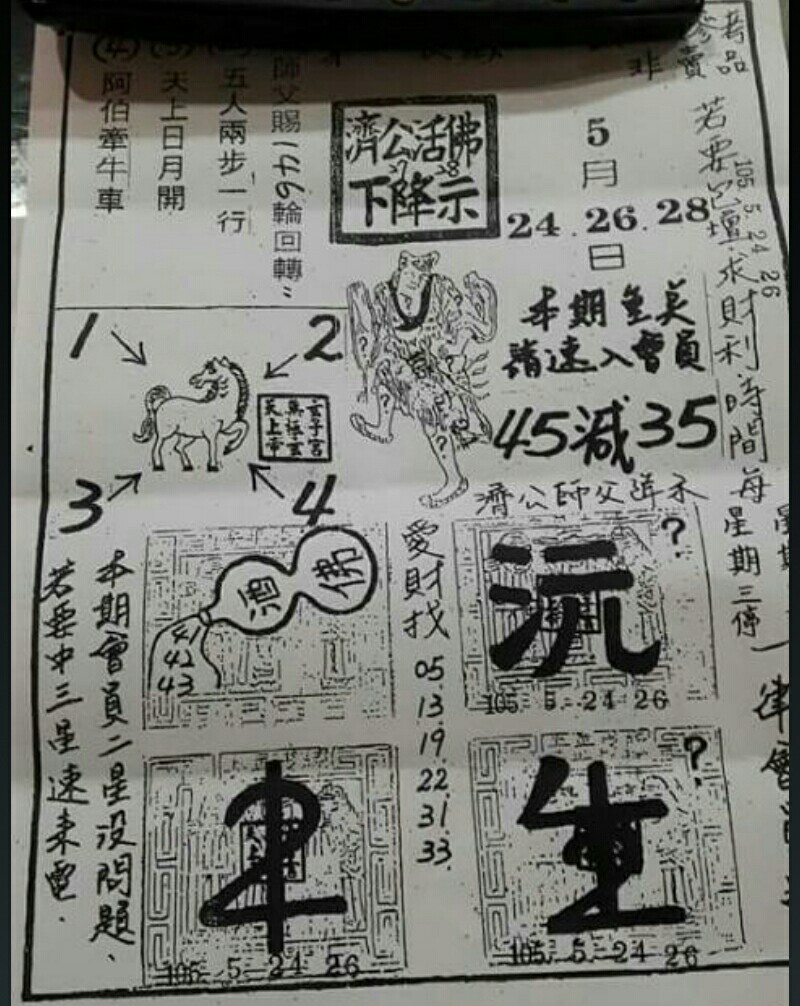 參考品
非賣
若要包壇求財利時間每
星期三停
105 5 24 26
5
月
24.26.28
日
濟公活佛
27 28
下降示
師父賜146輪回轉
五人兩步一行
天上日月開
(4)
阿伯牽牛車
本期
請速入會員
45減35
濟公師父詳示
1
2
3
4
玄子宮
無極玄
天上帝
酒
佛
41
42
43
愛財找
05
13
19
22
31
33
?
沅
105 5 24 26
105 5 24 26
?
105 5 24 26
本期會員二星沒問題、
若要中三星速來電.